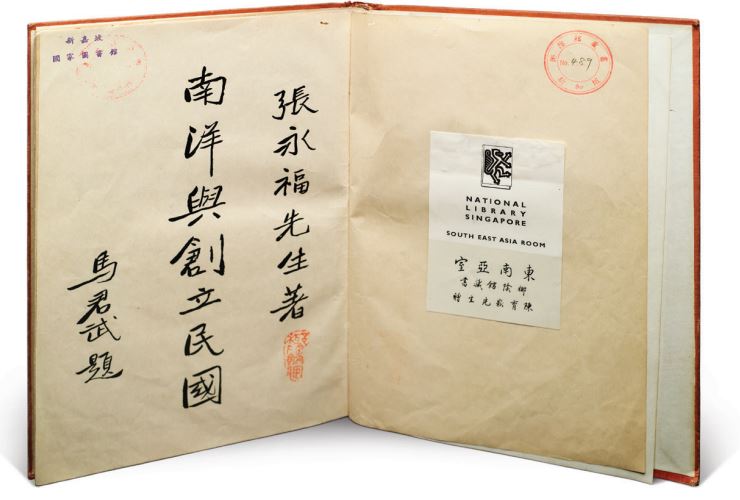 新嘉坡
國家圖書館
張永福先生著
南洋與創立民國
馬君武題
No. 489
NATIONAL
LIBRARY
SINGAPORE
SOUTH EAST ASIA ROOM
東南亞室
椰陰館藏書
陳育崧先生贈